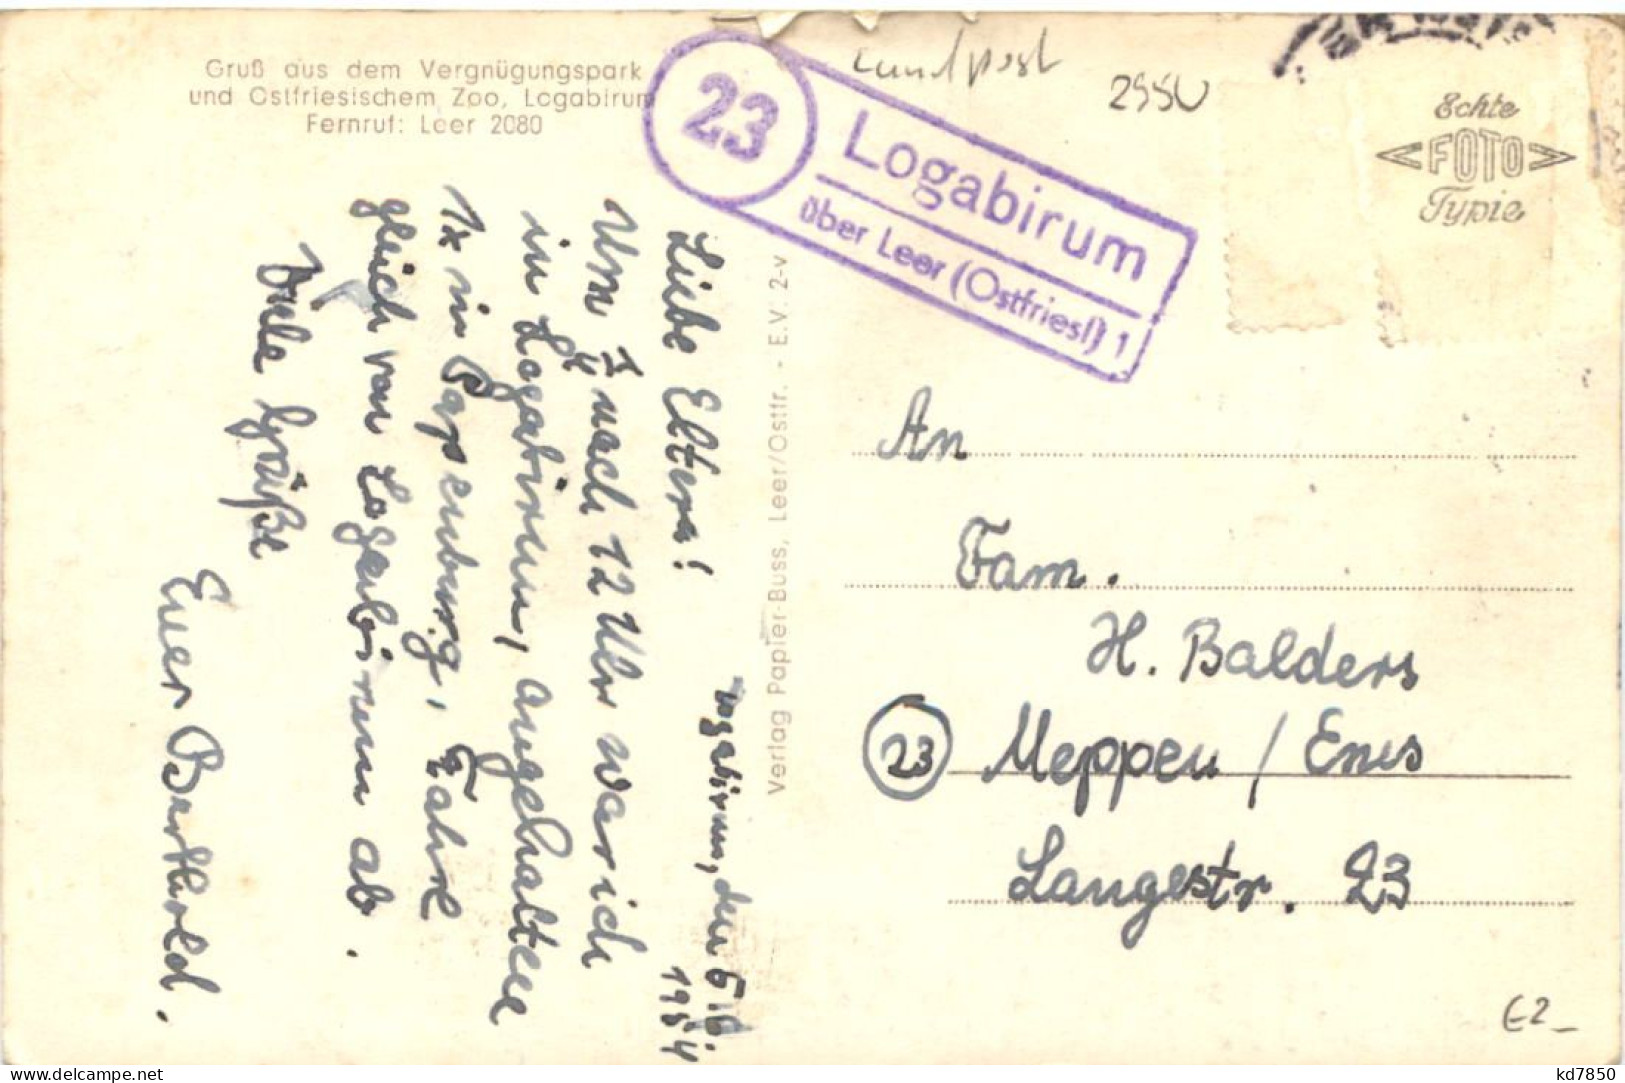 Gruß aus dem Vergnügungspark
und Ostfriesischem Zoo, Logabirum
Fernruf: Leer 2080
23
Logabirum
über Leer (Ostfriesl) 1
Landpost
2950
Echte
FOTO
Typie
Logabirum, den 5.6.
1954
Liebe Eltern!
Um nach 12 Uhr war ich
in Logabirum, angehalten
1x in Papenburg, Fahre
gleich von Logabirum ab.
Viele Grüße
Euer Berthold.
Verlag Papier-Buss, Leer/Ostfr. - E.V. 2-v
An
Fam.
H. Balders
23 Meppen / Ems
Langestr. 23
€2_
kd7850